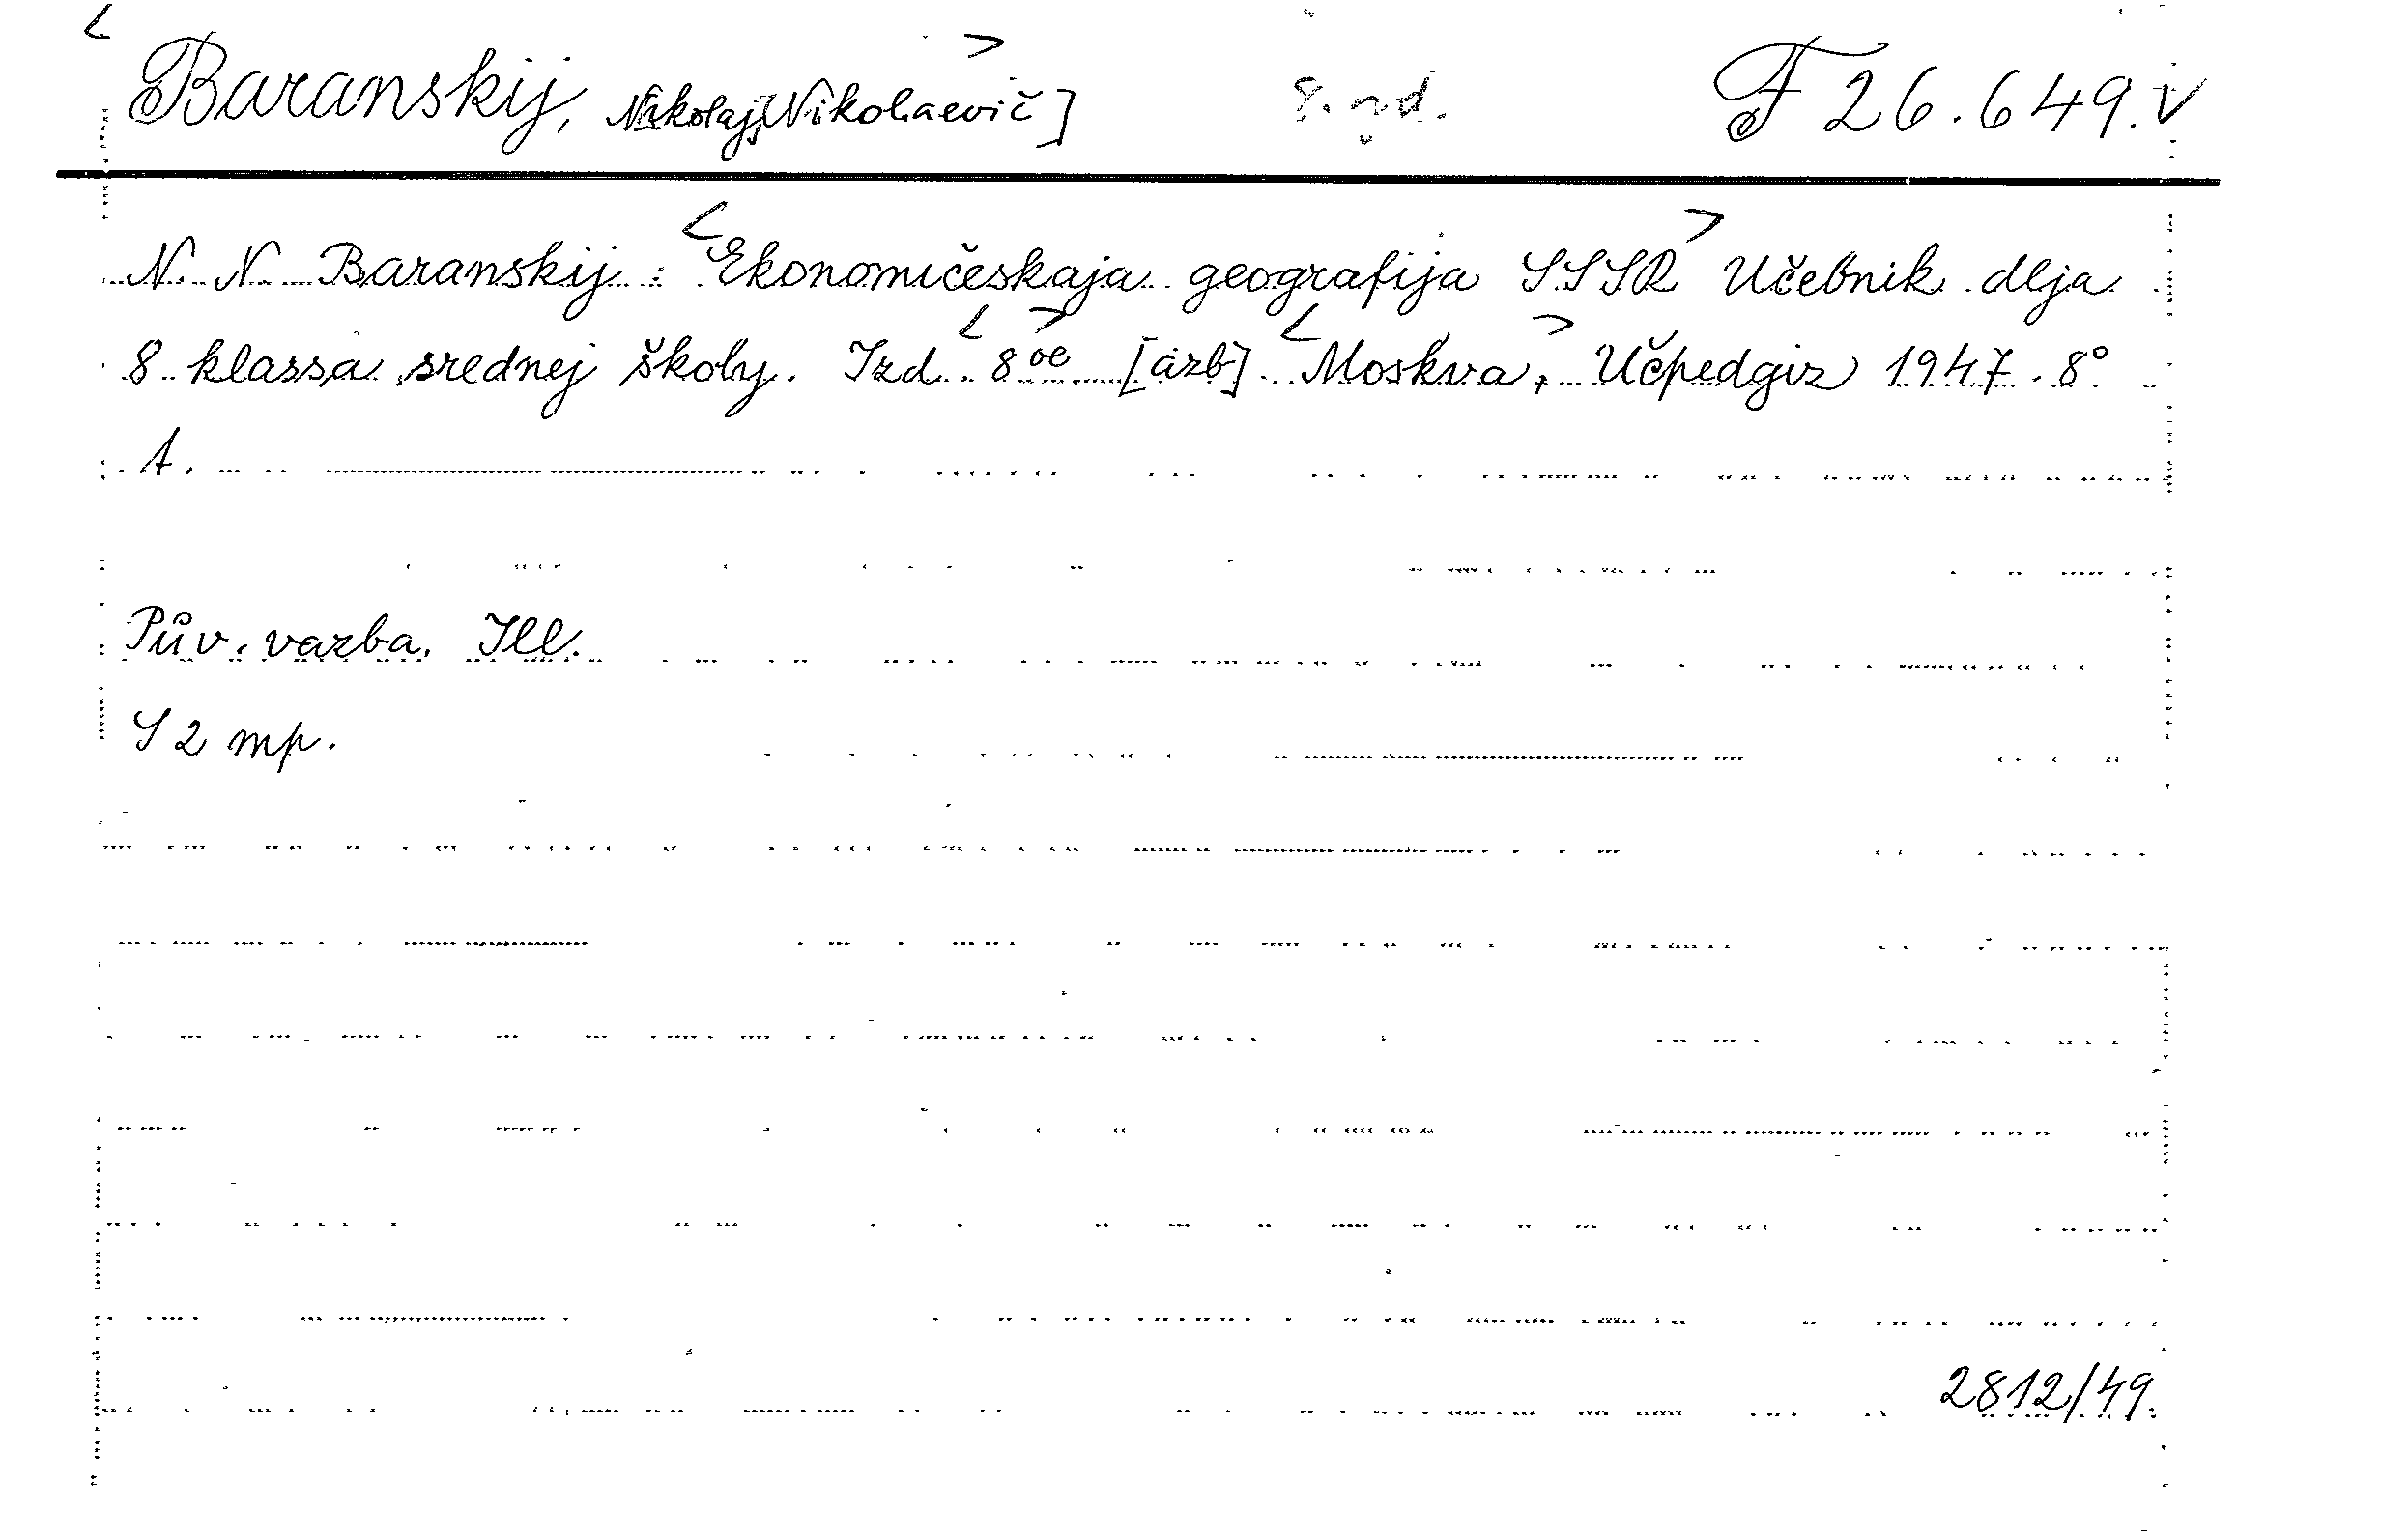 <Baranskij, Nikolaj Nikolaevič]> 8. vyd. F 26.649.V
N. N. Baranskij: <Ekonomičeskaja geografija SSSR> Učebnik dlja
8 klassa srednej školy. Izd. <8oe> [azb] <Moskva,> Učpedgiz 1947. 8°
A.
Pův. vazba. Ill.
S 2 mp.
2812/49.